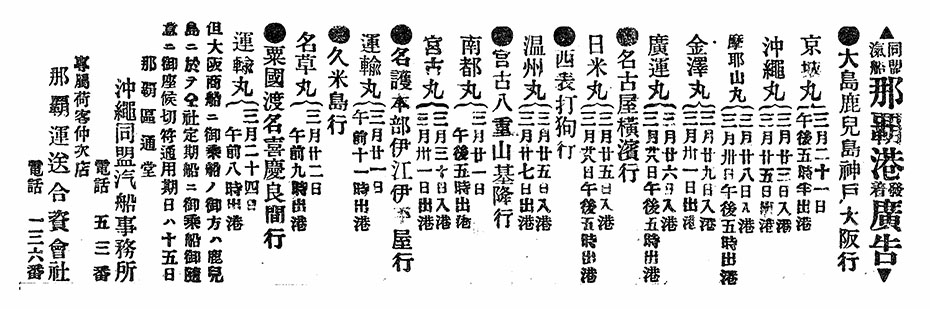 ▲同盟汽船那覇港發着廣告▼
●大島鹿兒島神戸大阪行
京城丸 三月二十一日
午後五時半出港
沖繩丸 三月廿三日入港
三月廿五日出港
摩耶山丸 三月廿八日入港
三月卅日午後五時出港
金澤丸 三月廿九日入港
三月卅一日出港
●名古屋横濱行
廣運丸 三月廿六日入港
三月廿八日午後五時出港
日米丸 三月廿五日入港
三月廿八日午後五時出港
●西表打狗行
温州丸 三月廿五日入港
三月廿七日出港
●宮古八重山基隆行
南都丸 三月廿一日
午後五時出港
宮古丸 三月三十日入港
三月卅一日出港
●名護本部伊江伊平屋行
運輸丸 三月廿一日
午前十一時出港
●久米島行
名草丸 三月廿二日
午前九時出港
●粟國渡名喜慶良間行
運輸丸 三月二十四日
午前八時出港
但大阪商船ニ御乘船ノ御方ハ鹿兒
島ニ於テ仝社定期船ニ御乘船御隨
意ニ御座候切符通用期日ハ十五日
那覇區通堂
沖繩同盟汽船事務所
電話 五三番
專屬荷客仲次店
那覇運送合資會社
電話 一三六番